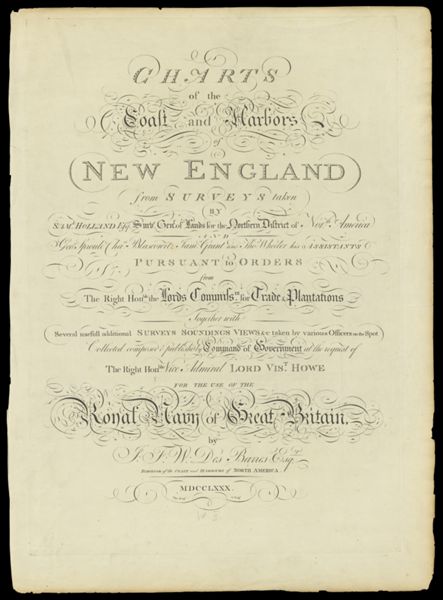 CHARTS
of the
Coast and Harbors
of
NEW ENGLAND
from SURVEYS taken
BY
SAML. HOLLAND Esqr. Survr. Genl. of Lands for the Northern District of North America
AND
Geo. Sproule Chas. Blaskowitz Jams. Grant and Thos. Wheeler his ASSISTANTS
PURSUANT to ORDERS
from
The Right Honble. the Lords Commissrs. for Trade & Plantations
Together with
Several usefull additional SURVEYS SOUNDINGS VIEWS &c taken by various Officers on the Spot
Collected composed & published by Command of Government at the request of
The Right Honble. Vice Admiral LORD VIST. HOWE
FOR THE USE OF THE
Royal Navy of Great Britain.
by
J. F. W. Des Barres Esqr.
SURVEYOR of the COAST and HARBOURS of NORTH AMERICA
MDCCLXXX.